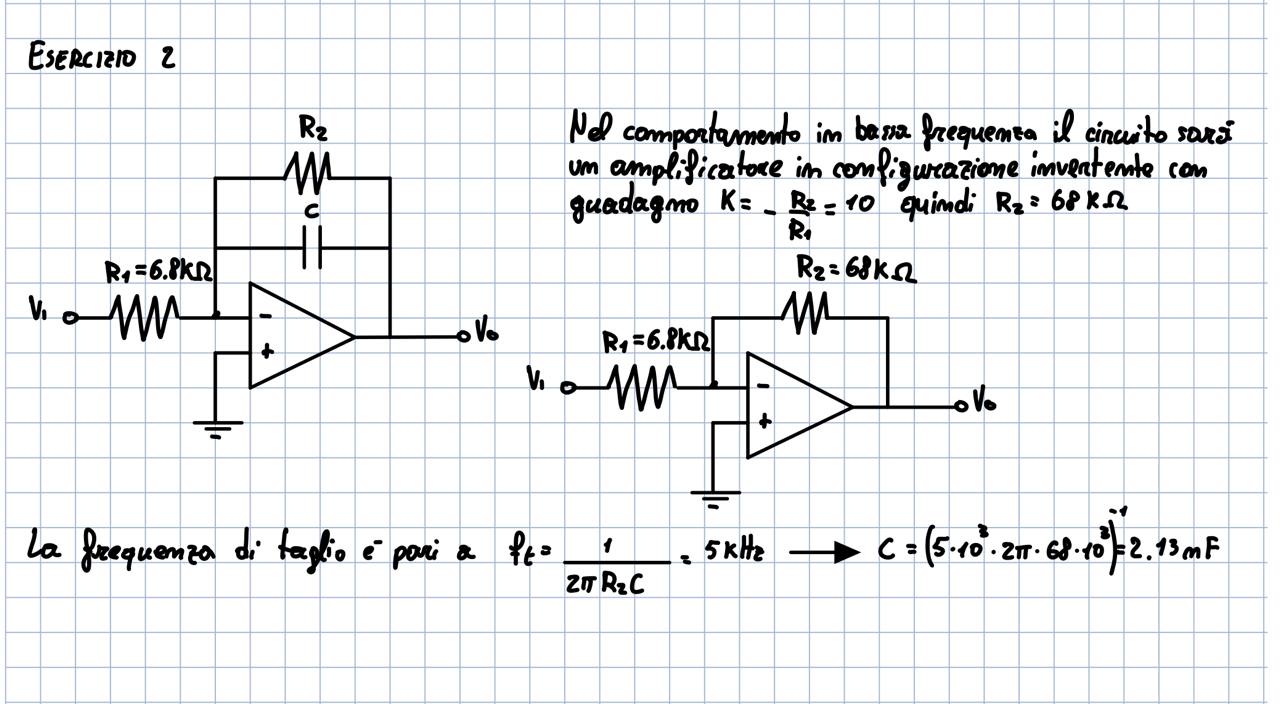 ESERCIZIO 2
R2
C
R1=6.8KΩ
V1
-
+
V0
Nel comportamento in bassa frequenza il circuito sarà
un amplificatore in configurazione invertente con
guadagno K= - R2/R1 = 10 quindi R2 = 68 KΩ
R2=68KΩ
R1=6.8KΩ
V1
-
+
V0
La frequenza di taglio è pari a ft= 1/(2π R2C) = 5 kHz → C = (5·10³·2π·68·10³)⁻¹=2.13 mF